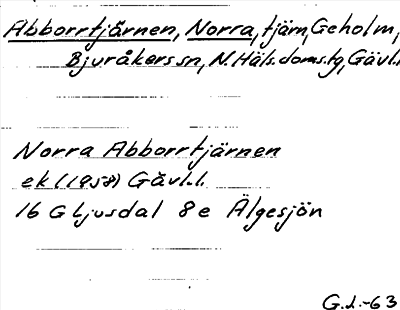 Abborrtjärnen, Norra, tjärn, Geholm,
Bjuråkers sn, N. Häls. doms. tg, Gävl.l
Norra Abborrtjärnen
ek (1958) Gävl.l.
16 G Ljusdal 8e Älgesjön
G.L.-63